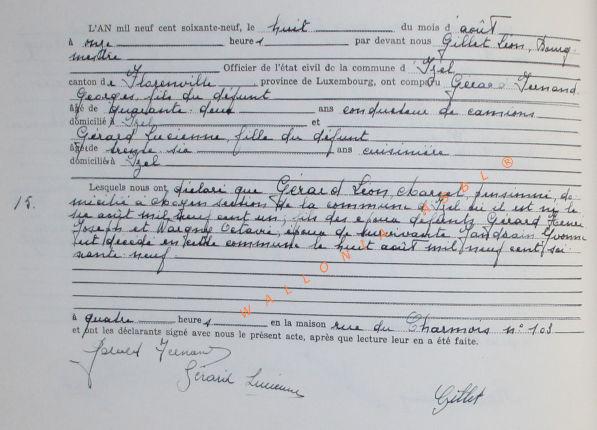 L'AN mil neuf cent soixante-neuf, le huit du mois d'août
à onze heures par devant nous Gillet Léon, Bourg-
mestre
Officier de l'état civil de la commune d'Izel
canton de Florenville, province de Luxembourg, ont comparu Gérard Fernand
Georges, fils du défunt
âgé de quarante deux ans conducteur de camions
domicilié à Izel et
Gérard Lucienne, fille du défunt
âgé de trente six ans cuisinière
domicilié à Izel
Lesquels nous ont déclaré que Gérard Léon pensionné, do-
micilié à Moyen section de la commune d'Izel où il est né le
six août mil neuf cent un, fils des époux défunts Gérard
Joseph et Octavie, époux de survivante Yvonne
est décédé en cette commune le huit août mil neuf cent soi-
xante-neuf.
15.
à quatre heures en la maison rue du Charmois n° 103
et ont les déclarants signé avec nous le présent acte, après que lecture leur en a été faite.
Gérard Fernand
Gérard Lucienne
Gillet
WALLONIA ASBL ®